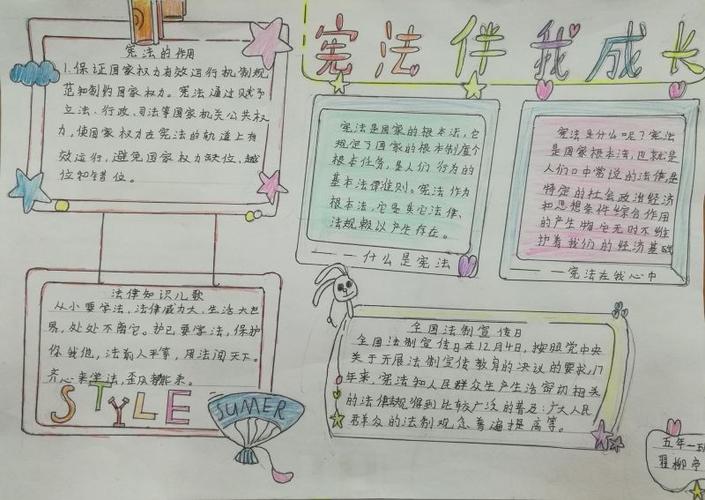 宪法伴我成长
宪法的作用
1.保证国家权力有效运行机制规
范和制约国家权力。宪法通过赋予
立法、行政、司法等国家机关公共权
力,使国家权力在宪法的轨道上有
效运行,避免国家权力缺位、越
位和错位。
宪法是国家的根本法,它
规定了国家的根本制度个
根本任务,是人们行为的
基本法律准则。宪法作为
根本法,它是其它法律、
法规赖以产生存在。
一什么是宪法
宪法是什么呢?宪法
是国家根本法,也就是
人们口中常说的法律,是
特定的社会政治经济
和思想条件综合作用
的产生物它无时不维
护着我们的经济基础
一宪法在我心中
法律知识儿歌
从小要学法,法律威力大,生活大世
易,处处不离它。护己要学法,保护
你我他,法前人平等,用法闯天下。
齐心来学法,歪风
STYLE
SUMER
全国法制宣传日
全国法制宣传日在12月4日,按照党中央
关于开展法制宣传教育的决议的要求,17
年来,宪法和人民群众生产生活密切相关
的法律规得到比较广泛的普及:广大人民
群众的法制观念普遍提高等。
五年一班